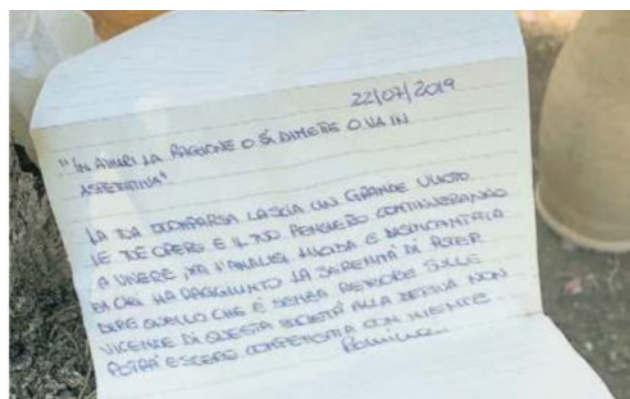 22/07/2019
"IN AMORE LA RAGIONE O SI DIMETTE O VA IN
ASPETTATIVA"
LA TUA SCOMPARSA LASCIA UN GRANDE VUOTO.
LE TUE OPERE E IL TUO PENSIERO CONTINUERANNO
A VIVERE MA L'ANALISI LUCIDA E DISINCANTATA
DI CHI HA RAGGIUNTO LA SERENITÀ DI POTER
DIRE QUELLO CHE È SENZA REMORE SULLE
VICENDE DI QUESTA SOCIETÀ ALLA DERIVA NON
POTRÀ ESSERE COMPENSATA CON NIENTE.